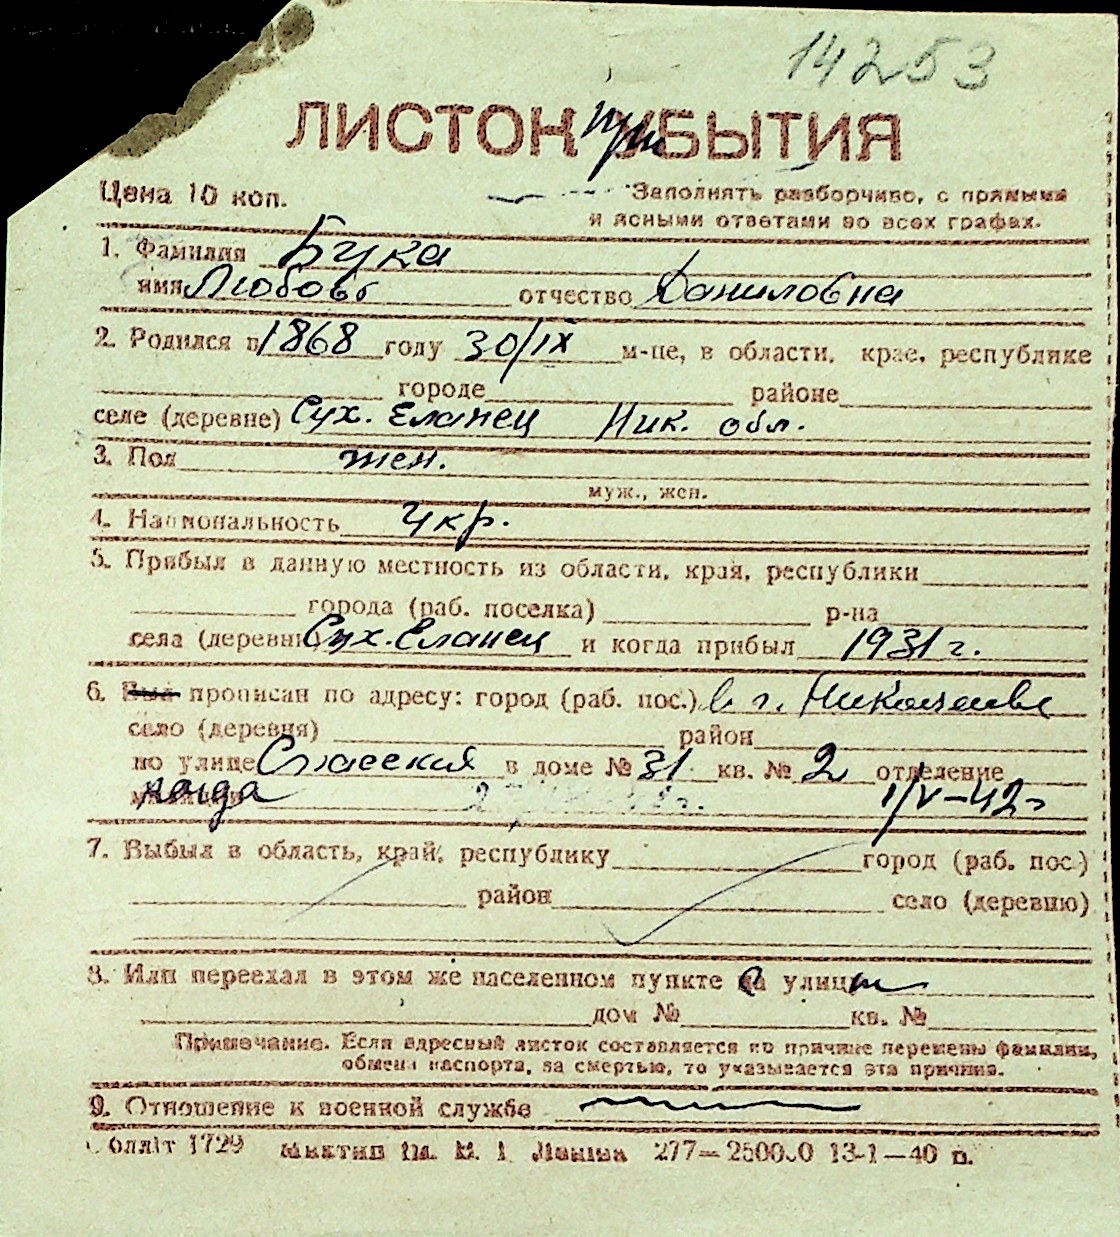 14253
ЛИСТОК при УБЫТИЯ
Цена 10 коп.
Заполнять разборчиво, с прямыми
и ясными ответами во всех графах.
1. Фамилия Бука
имя Любовь отчество Даниловна
2. Родился в 1868 году 30/IX м-це, в области, крае, республике
городе районе
селе (деревне) Сух. Еланец Ник. обл.
3. Пол жен.
муж., жен.
4. Национальность укр.
5. Прибыл в данную местность из области, края, республики
города (раб. поселка) р-на
села (деревни) Сух. Еланец и когда прибыл 1931 г.
6. Был прописан по адресу: город (раб. пос.) в г. Николаеве
село (деревня) район
по улице Спасская в доме № 31 кв. № 2 отделение
милиции когда 1/V-42 г
7. Выбыл в область, край, республику город (раб. пос.)
район село (деревню)
8. Или переехал в этом же населенном пункте с улицы
дом № кв. №
Примечание. Если адресный листок составляется по причине перемены фамилии,
обмена паспорта, за смертью, то указывается эта причина.
9. Отношение к военной службе
1729 277—250000 13-1—40 п.